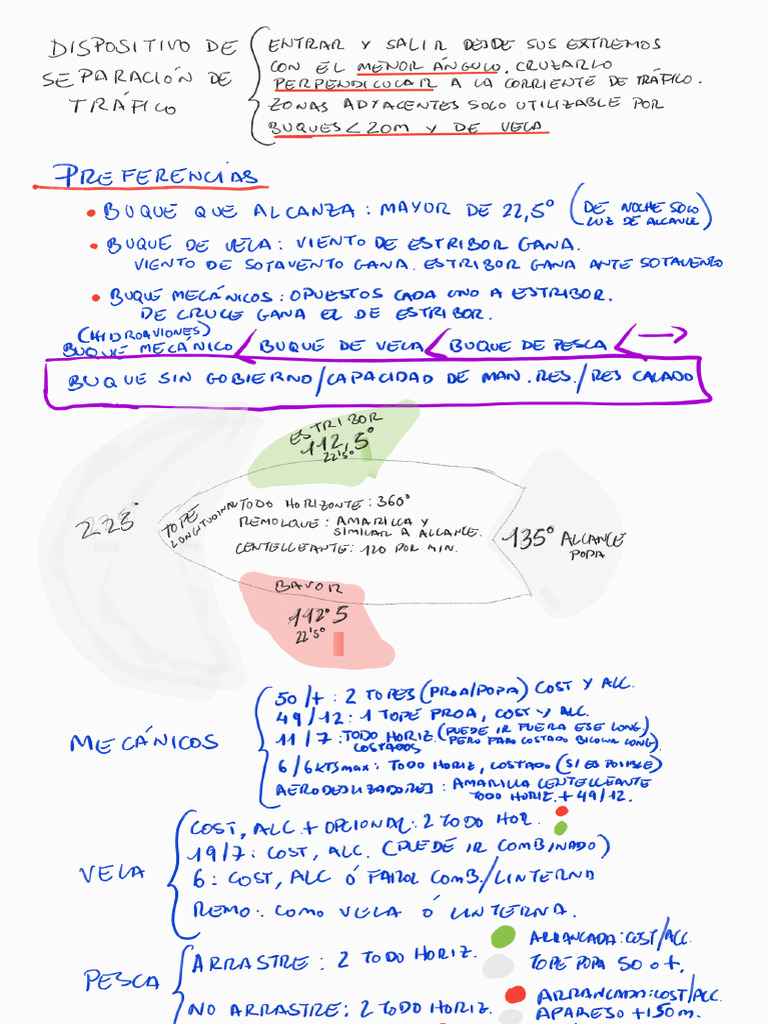 DISPOSITIVO DE
SEPARACIÓN DE
TRÁFICO
ENTRAR Y SALIR DESDE SUS EXTREMOS
CON EL MENOR ÁNGULO. CRUZARLO
PERPENDICULAR A LA CORRIENTE DE TRÁFICO.
ZONAS ADYACENTES SOLO UTILIZABLE POR
BUQUES < 20M Y DE VELA
PREFERENCIAS
• BUQUE QUE ALCANZA: MAYOR DE 22,5° (DE NOCHE SOLO
LUZ DE ALCANCE)
• BUQUE DE VELA: VIENTO DE ESTRIBOR GANA.
VIENTO DE SOTAVENTO GANA. ESTRIBOR GANA ANTE SOTAVENTO
• BUQUE MECÁNICOS: OPUESTOS CADA UNO A ESTRIBOR.
DE CRUCE GANA EL DE ESTRIBOR.
(HIDROAVIONES)
BUQUE MECÁNICO < BUQUE DE VELA < BUQUE DE PESCA < →
BUQUE SIN GOBIERNO/CAPACIDAD DE MAN. RES./RES CALADO
ESTRIBOR
112,5°
22'5°
225°
TOPE
LONGITUDINAL
TODO HORIZONTE: 360°
REMOLQUE: AMARILLA Y
SIMILAR A ALCANCE.
CENTELLEANTE: 120 POR MIN.
135° ALCANCE
POPA
BAVOR
112°5
22'5°
MECÁNICOS
50/+: 2 TOPES (PROA/POPA) COST Y ALC.
49/12: 1 TOPE PROA, COST Y ALC.
11/7: TODO HORIZ. (PUEDE IR FUERA ESE LONG.)
COSTADOS PERO FARO COSTADO BICOLOR LONG).
6/6KTS max: TODO HORIZ, COSTADO (SI ES POSIBLE)
AERODESLIZADORES: AMARILLA CENTELLEANTE
TODO HORIZ. + 49/12.
VELA
COST, ALC + OPCIONAL: 2 TODO HOR.
19/7: COST, ALC. (PUEDE IR COMBINADO)
6: COST, ALC Ó FAROL COMB./LINTERNA
REMO: COMO VELA Ó LINTERNA.
PESCA
ARRASTRE: 2 TODO HORIZ.
ARRANCADA: COST/ALC.
TOPE POPA 50 o +.
NO ARRASTRE: 2 TODO HORIZ.
ARRANCADA: COST/ALC.
APARESO +150 m.